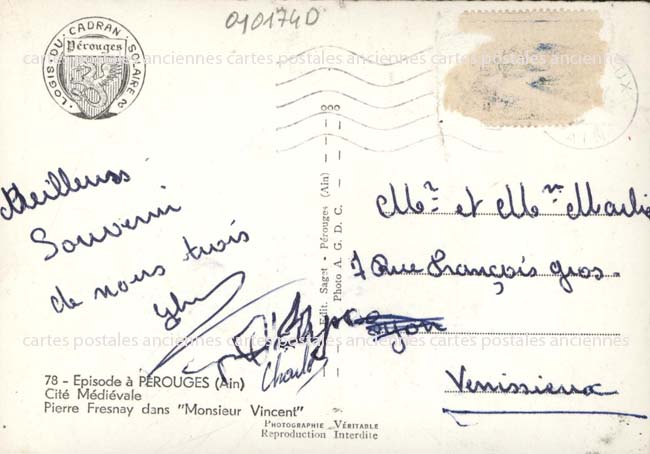 0101740
LOGIS DU CADRAN SOLAIRE
Pérouges
cartes postales anciennes cartes postales anciennes cartes postales anciennes
Meilleurs
Souvenir
de nous trois
Charlo
78 - Episode à PÉROUGES (Ain)
Cité Médiévale
Pierre Fresnay dans "Monsieur Vincent"
PHOTOGRAPHIE VÉRITABLE
Reproduction Interdite
Edit. Saget - Pérouges (Ain)
Photo A. G. D. C.
Mr et Mme
7 Rue François Gros
Lyon
Venissieux